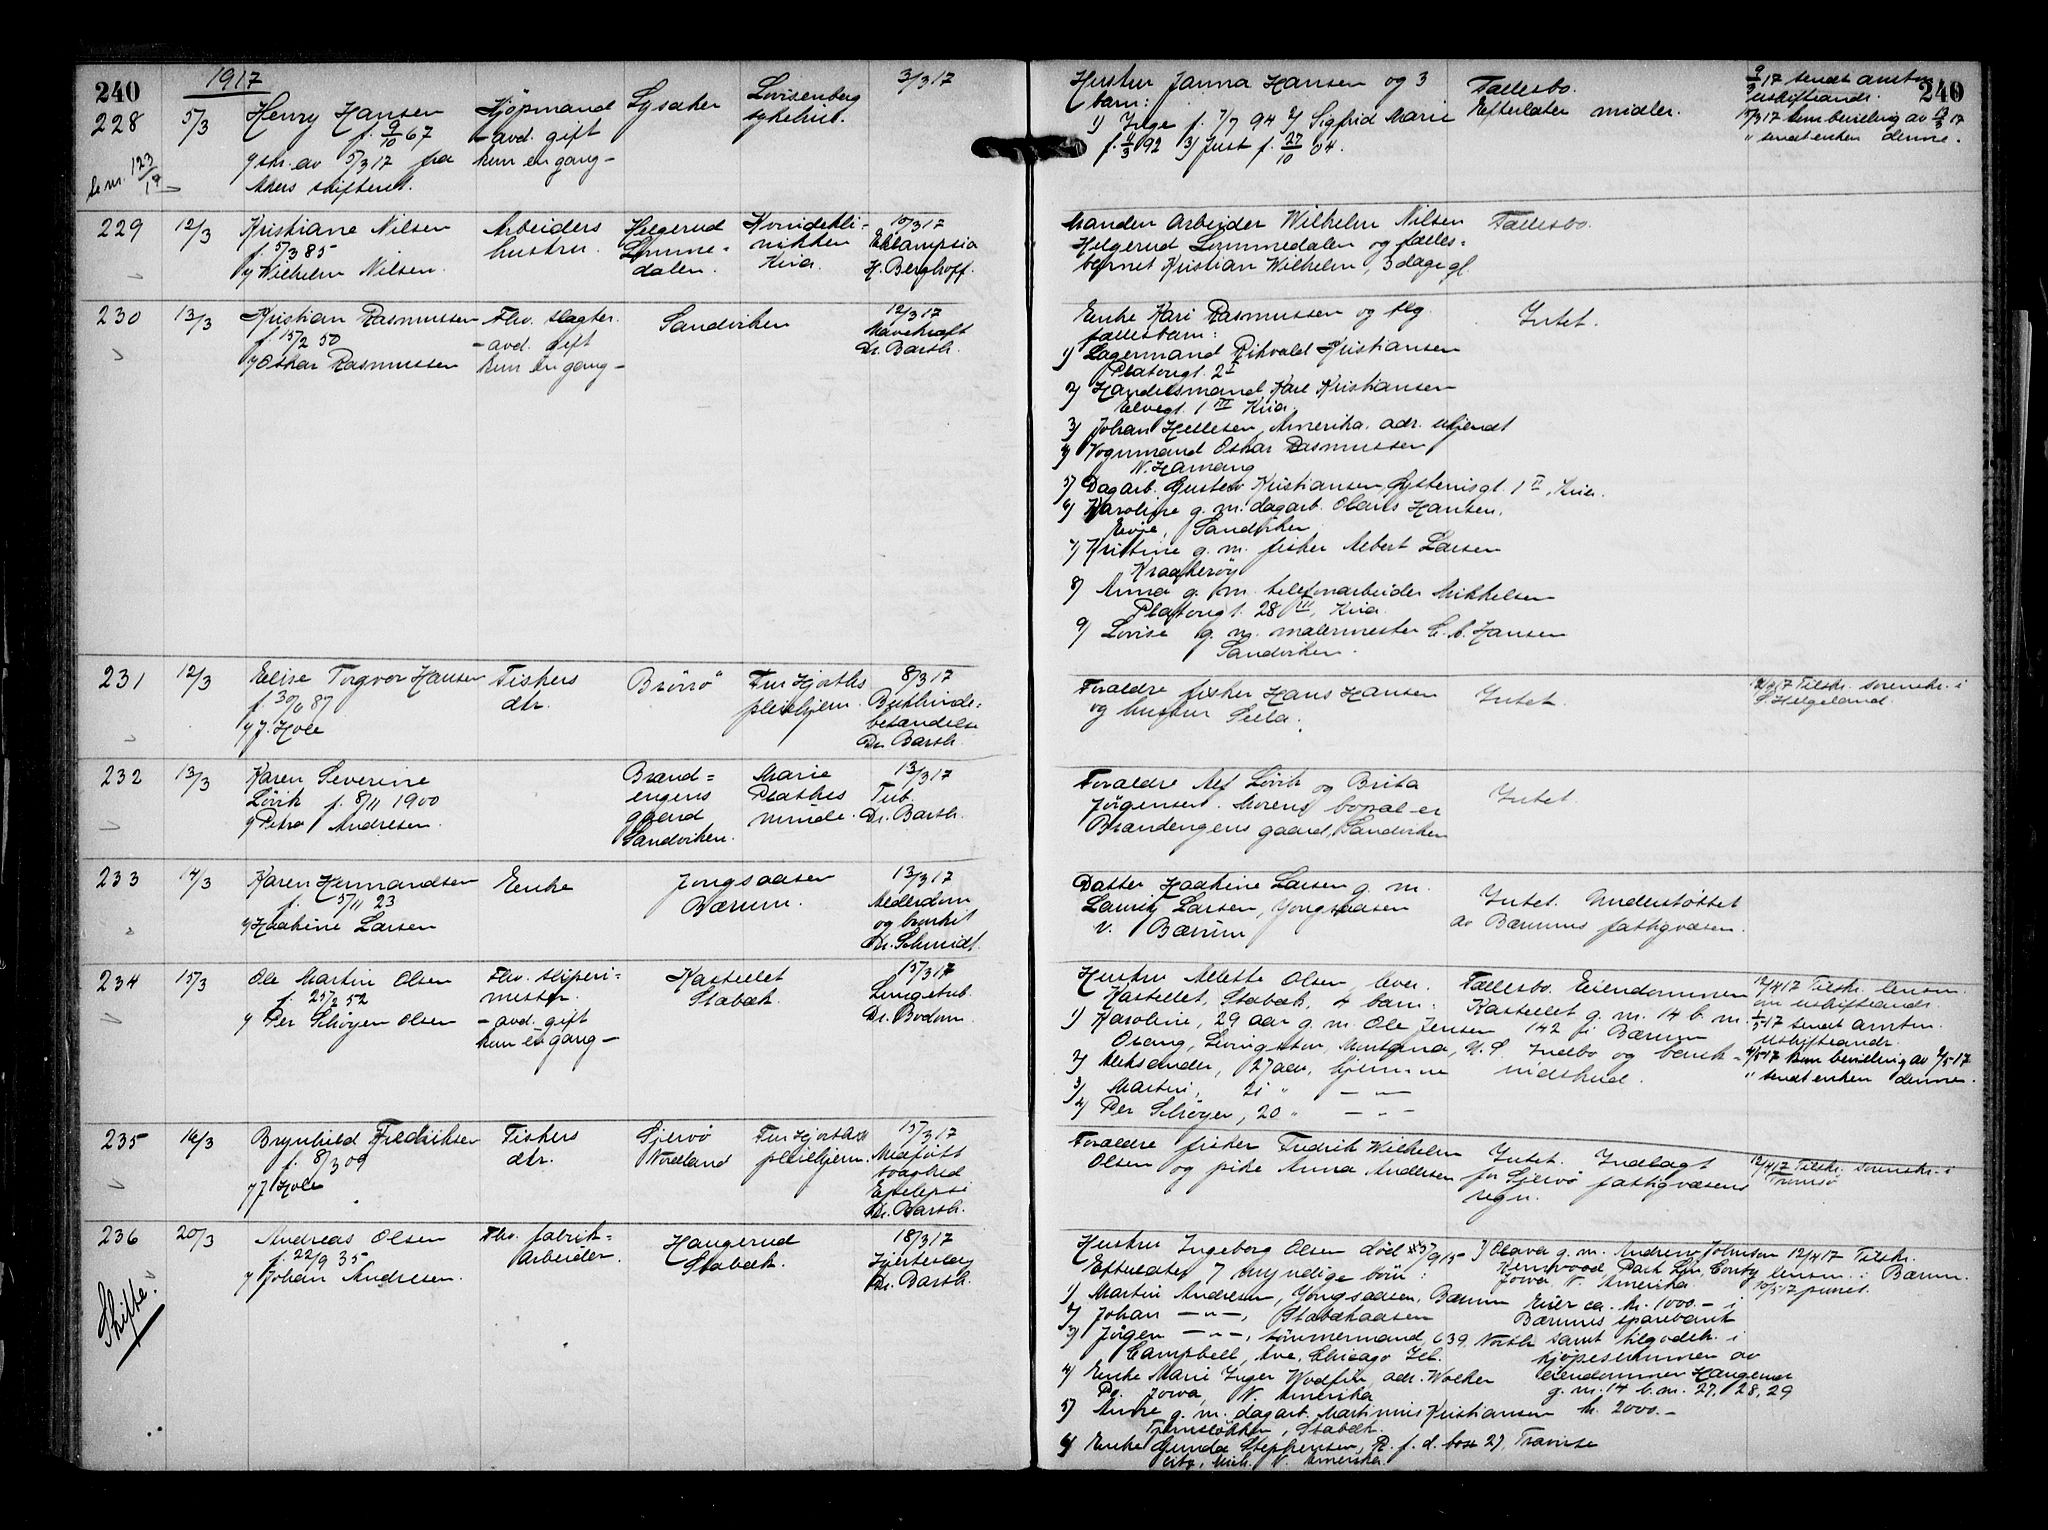 240
1917
228
5/3
Henry Hansen
f. 9/10 67
g skr. av 5/3 17 fra
Akers skifteret.
Se nr. 123/19
Kjöpmand
- avd. gift
kun en gang -
Lysaker
Lovisenberg
sykehus.
3/3 17
Hustru Janna Hansen og 3
barn:
1) Inge f. 7/7 94 2) Sigfrid Marie
f. 4/3 92 3) Just f. 27/10 04.
Fællesbo.
Efterlater midler.
240
9/3 17 sendt amtm
uskifteandr.
" sendt enken denne.
229
12/3
Kristiane Nilsen
f. 5/3 85
v/ Wilhelm Nilsen.
Arbeiders
hustru.
Helgerud
Lomme-
dalen.
Kvindekli-
nikken
Kria.
10/3 17
Eklampsia
H. Berghoff.
Manden Arbeider Wilhelm Nilsen
Helgerud Lommedalen og fælles-
barnet Kristian Wilhelm, 3 dage gl.
Fællesbo.
230
13/3
Kristian Rasmussen
f. 15/2 50
v/ Oskar Rasmussen
Fhv. slagter.
- avd. gift
kun en gang -
Sandviken
12/3 17
Mavekræft
Dr. Barth.
Enke Kari Rasmussen og flg.
fællesbarn:
1) Lagermand Rikvald Kristiansen
Platougt. 2 I
2) Handelsmand Karl Kristiansen
Elvegt. 1 III Kria.
3) Johan Hellesen, Amerika. adr. ukjendt
4) Vognmand Oskar Rasmussen
N. Hamang
5) Dagarb. Gustav Kristiansen, 1 II, Kria.
6) Karoline g. m. dagarb. Olaus Hansen,
Evje, Sandviken
7) Kristine g. m. fisker Albert Larsen
Kraakerøy
8) Anna g. m. telefonarbeider Mikkelsen
Platougt. 28 III, Kria.
9) Lovise g. m. malermester C. C. Hansen
Sandviken.
Intet.
231
12/3
Elise Torgvor Hansen
f. 30/6 87
v/ J. Hole
Fiskers
dtr.
Brönö
Fru Hjorths
pleiehjem.
8/3 17
Bukhinde-
betændelse
Dr. Barth.
Foraldre fisker Hans Hansen
og hustru
Intet.
12/4 17 Tilskr. sorenskr. i
S. Helgeland.
232
13/3
Karen Severine
Lövik f. 8/11 1900
v/ Petra Andresen.
Brand-
engens
gaard
Sandviken.
Marie
Plathes
minde.
13/3 17
Tub.
Dr. Barth.
Foraldre Alf Lövik og Brita
Jørgensen. Morens bopæl er
Brandengens gaard, Sandviken
Intet
233
14/3
Karen Hermandsen
f. 5/11 23
v/ Haakine Larsen
Enke
Jongsaasen
Bærum.
13/3 17
Alderdom
og bronkit
Dr. Schmidt.
Datter Haakine Larsen g. m.
Lauritz Larsen, Jongsaasen
V. Bærum
Intet. Understøttet
av Bærums fattigvæsen.
234
15/3
Ole Martin Olsen
f. 25/2 52
v/ Per Schøyen Olsen
Fhv. sliperi-
mester.
- avd. gift
kun en gang -
Kastellet
Stabæk.
15/3 17
Lungetub.
Dr. Bodom.
Hustru Alette Olsen, lever.
Kastellet, Stabæk, 4 barn:
1) Karoline, 29 aar g. m. Ole Jensen
Osang, Livingston, Montana, U. S.
2) Aleksander, 27 aar, hjemme
3) Martin, 21 " — " —
4) Per Schøyen, 20 " — " —
Fællesbo. Eiendommen
Kastellet g. nr. 14 b. nr.
142 i Bærum
Indbo og bank-
indskud.
12/4 17 Tilskr. lensm
om uskifteandr.
1/5 17 sendt amtm.
uskifteandr.
4/5 17 kom bevilling av 2/5 17
" sendt enken denne.
235
16/3
Brynhild Fredriksen
f. 8/3 09
v/ J. Hole
Fiskers
dtr.
Sjervö
Nordland
Fru Hjorths
pleiehjem.
15/3 17
Medføtt
svaghed
Epilepsi
Dr. Barth.
Foraldre fisker Fredrik Wilhelm
Olsen og pike Anna Andersen
Intet. Indlagt
for Sjervö fattigvæsens
regn.
12/4 17 Tilskr. sorenskr. i
Tromsö
236
20/3
Andreas Olsen
f. 22/9 35
v/ Johan Andresen.
Skifte.
Fhv. fabrik-
arbeider.
Haugerud
Stabæk.
18/3 17
Hjerteslag
Dr. Barth.
Hustru Ingeborg Olsen død 9/15
Efterlater 7 myndige børn:
1) Martin Andresen, Jongsaasen, Bærum
2) Johan — " —, Stabækaasen
3) Jørgen — " —, tömmermand, 639 North
Campbell, Ave, Chicago Ill.
4) Enke Marie Inger adr. Walker
Po. Jowa, N. Amerika
5) Anne g. m. dagarb. Martinius Kristiansen
Stabæk.
6) Enke Gunda Stephensen, R. f. d. box 27, Travirse
City, Mich. N. Amerika.
7) Olava g. m. Andrew Johnson
Kenwood Park Lin, County
Jowa, N. Amerika
Eier ca. kr. 1000.- i
Bærums sparebank
samt tilgodeh. i
kjøpesummen av
eiendommen Haugerud
g. nr. 14 b. nr. 27, 28, 29
kr. 2000.-
12/4 17 Tilskr.
lensm. i Bærum.